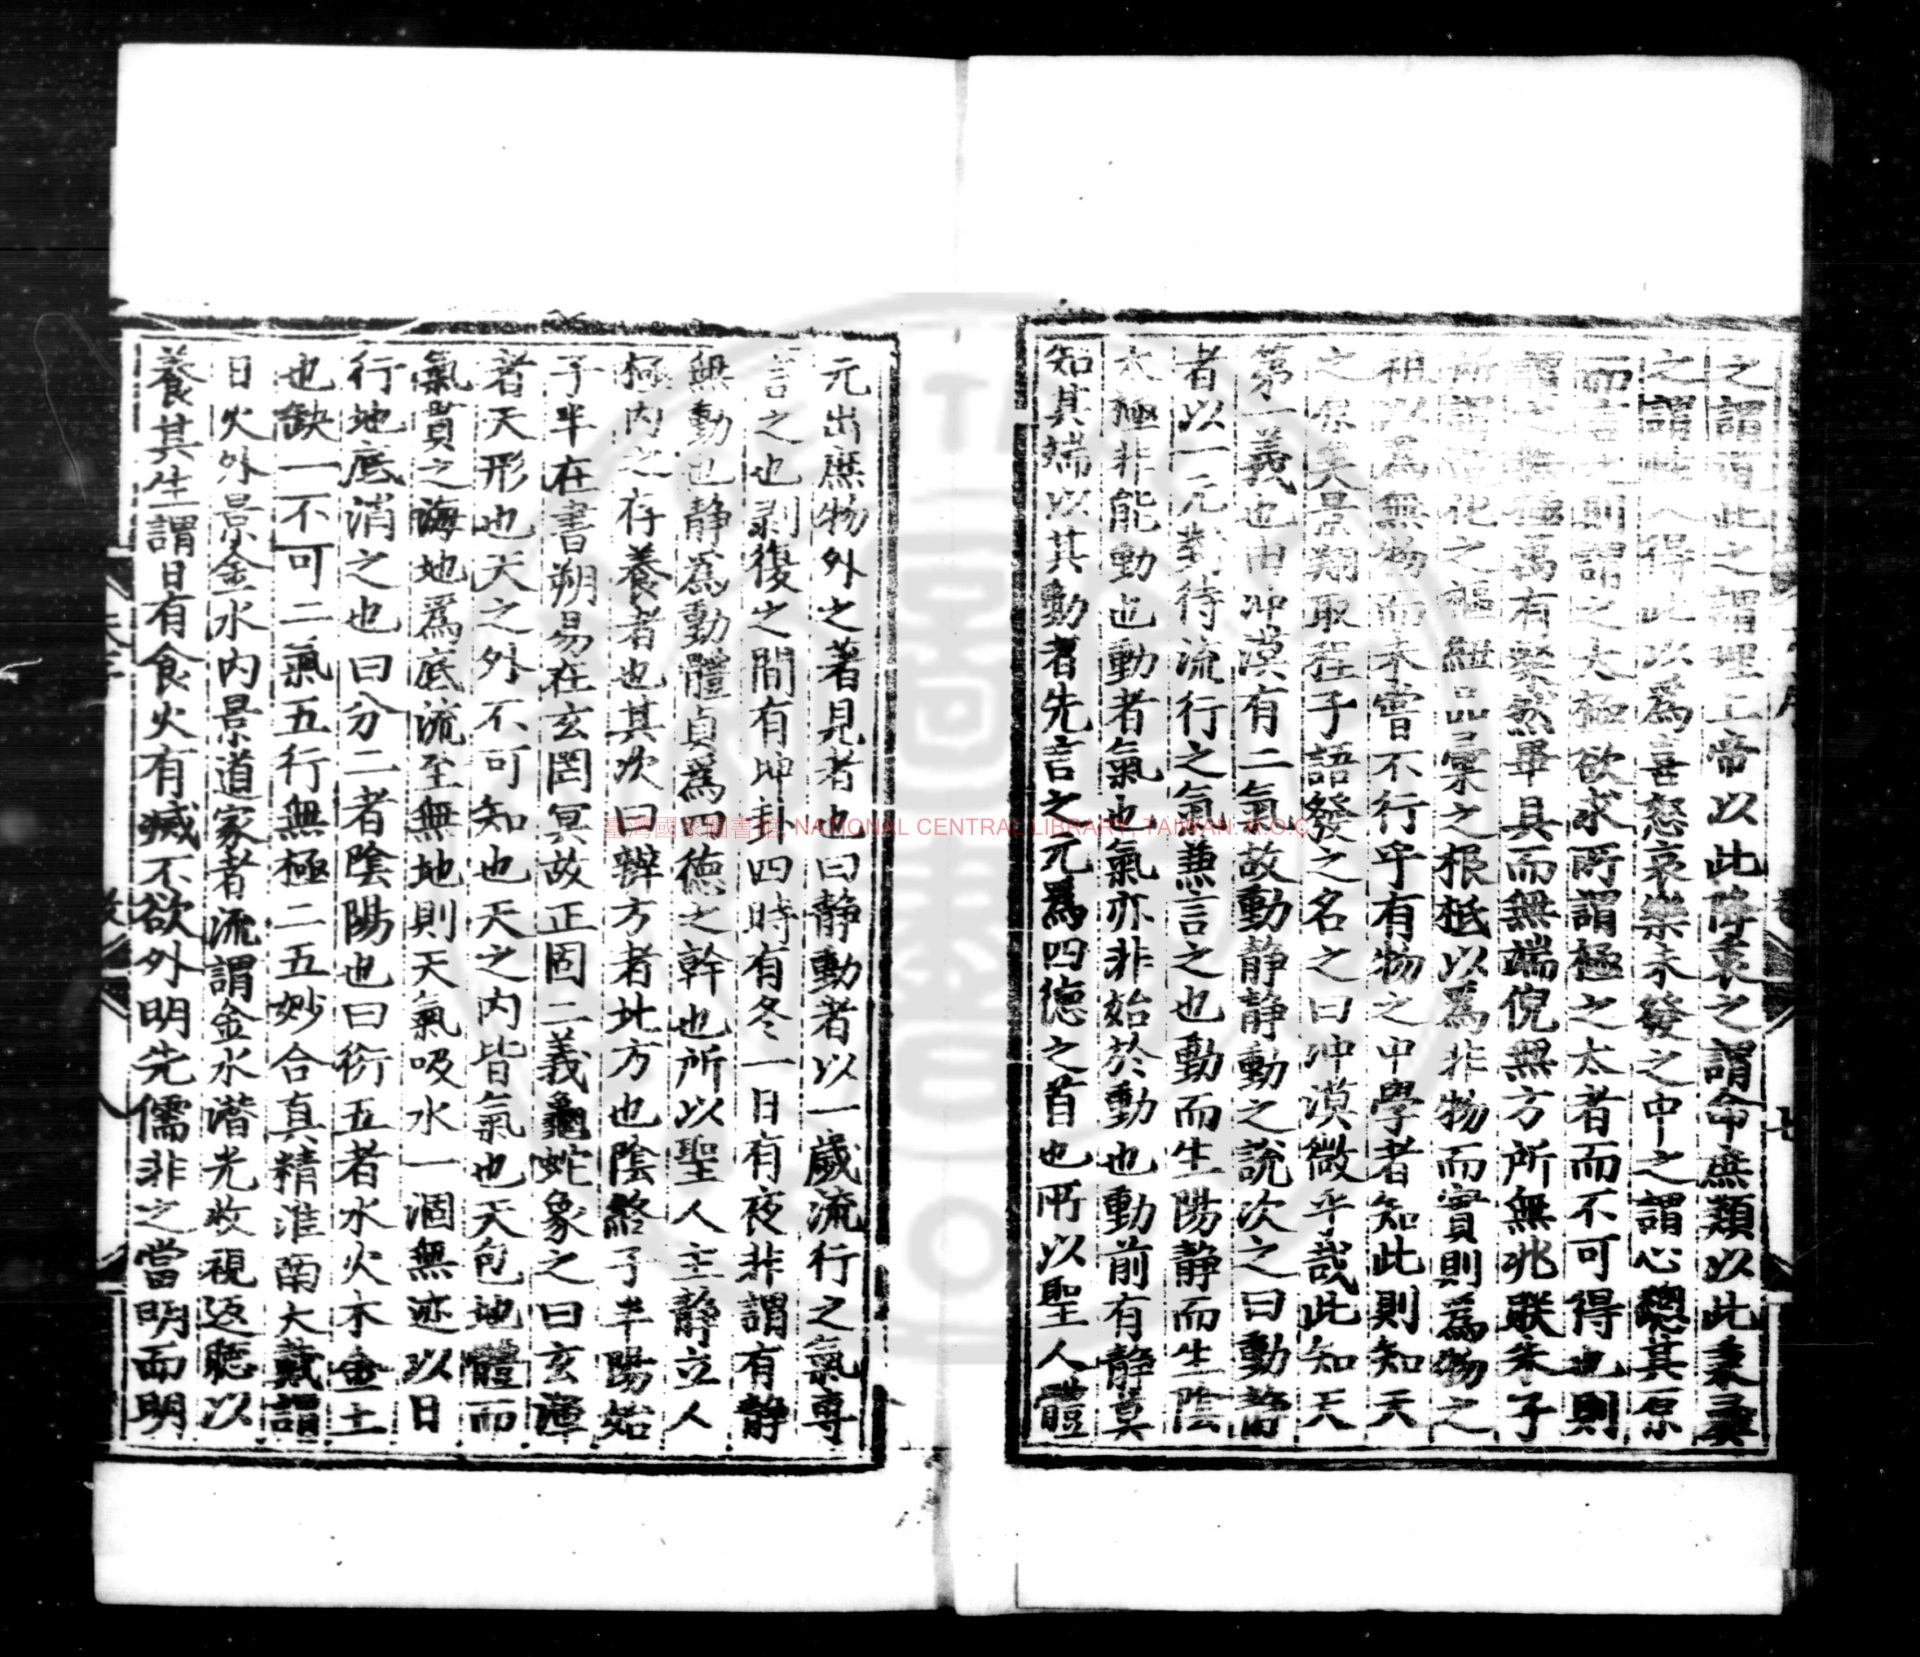 之謂謂此之謂理上帝以此降衷之謂命庶類以此秉彝
之謂性人得此以爲喜怒哀樂未發之中之謂心總其原
而言之則謂之太極欲求所謂極之太者而不可得也則
謂之無極焉有粲然畢具而無端倪無方所無兆朕朱子
所謂造化之樞紐品彙之根柢以爲非物而實則爲物之
祖以爲無物而未嘗不行乎有物之中學者知此則知天
之原矣景翔取程子語發之名之曰冲漠微乎哉此知天
第一義也由冲漠有二氣故動靜靜動之說次之曰動靜
者以一元對待流行之氣兼言之也動而生陽靜而生陰
太極非能動也動者氣也氣亦非始於動也動前有靜莫
知其端以其動者先言之元爲四德之首也所以聖人體
元出庶物外之著見者也曰靜動者以一歲流行之氣專
言之也剥復之間有坤卦四時有冬一日有夜非謂有靜
無動也靜爲動體貞爲四德之幹也所以聖人主靜立人
極内之存養者也其次曰辨方者北方也陰終子半陽始
子半在書朔易在玄罔冥故正固二義龜蛇象之曰玄渾
者天形也天之外不可知也天之内皆氣也天包地體而
氣貫之海地爲底流至無地則天氣吸水一涸無迹以日
行地底消之也曰分二者陰陽也曰衍五者水火木金土
也缺一不可二氣五行無極二五妙合真精淮南大戴謂
日火外景金水内景道家者流謂金水潜光收視返聽以
養其生謂日有食火有滅不欲外明先儒非之當明而明
臺灣國家圖書館 NATIONAL CENTRAL LIBRARY, TAIWAN. R.O.C.